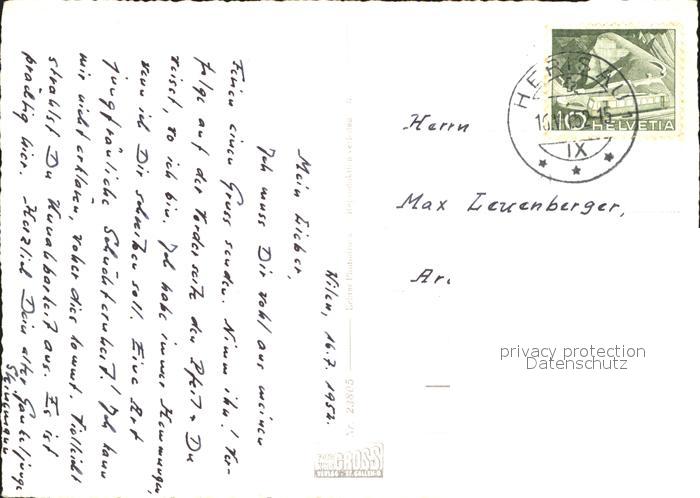 Wilen, 16.7.1952.
Mein Lieber,
Ich muss Dir wohl aus meinen
Ferien einen Gruss senden. Nimm ihn! Ver-
folge auf der Vorderseite den Pfeil & Du
weisst, wo ich bin. Ich habe immer Hemmungen,
wenn ich Dir schreiben soll. Eine Art
jungfräuliche Schüchternheit! Ich kann
mir nicht erklären, woher dies kommt. Vielleicht
strahlst Du Unnahbarkeit aus. Es ist
prächtig hier. Herzlich Dein alter
Herrn
Max Leuenberger,
Ar.
HERISAU
IX
10
HELVETIA
Nr. 23805
GROSS
privacy protection
Datenschutz